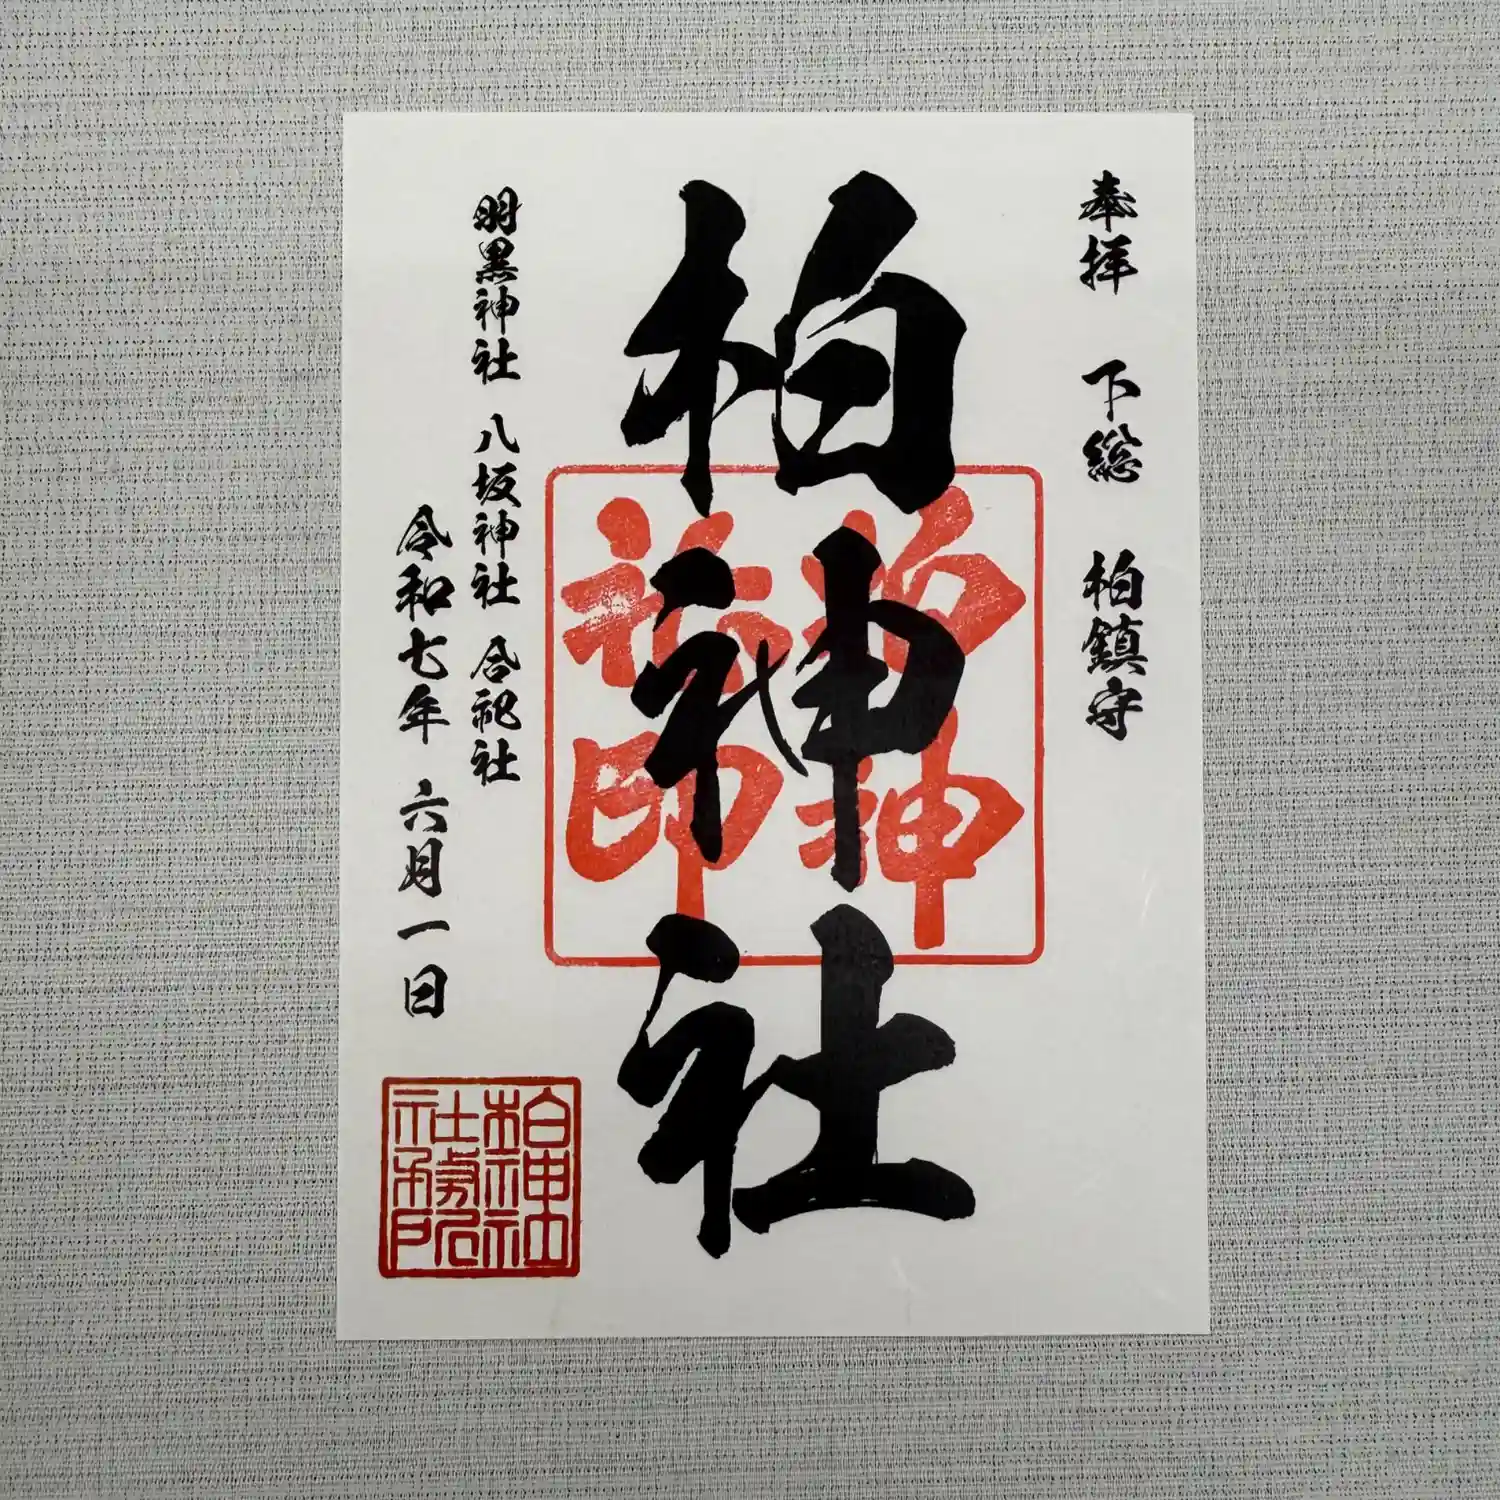 奉拝 下総 柏鎮守
柏神社
柏神
社印
羽黒神社 八坂神社 合祀社
令和七年 六月一日
柏神社
社務所